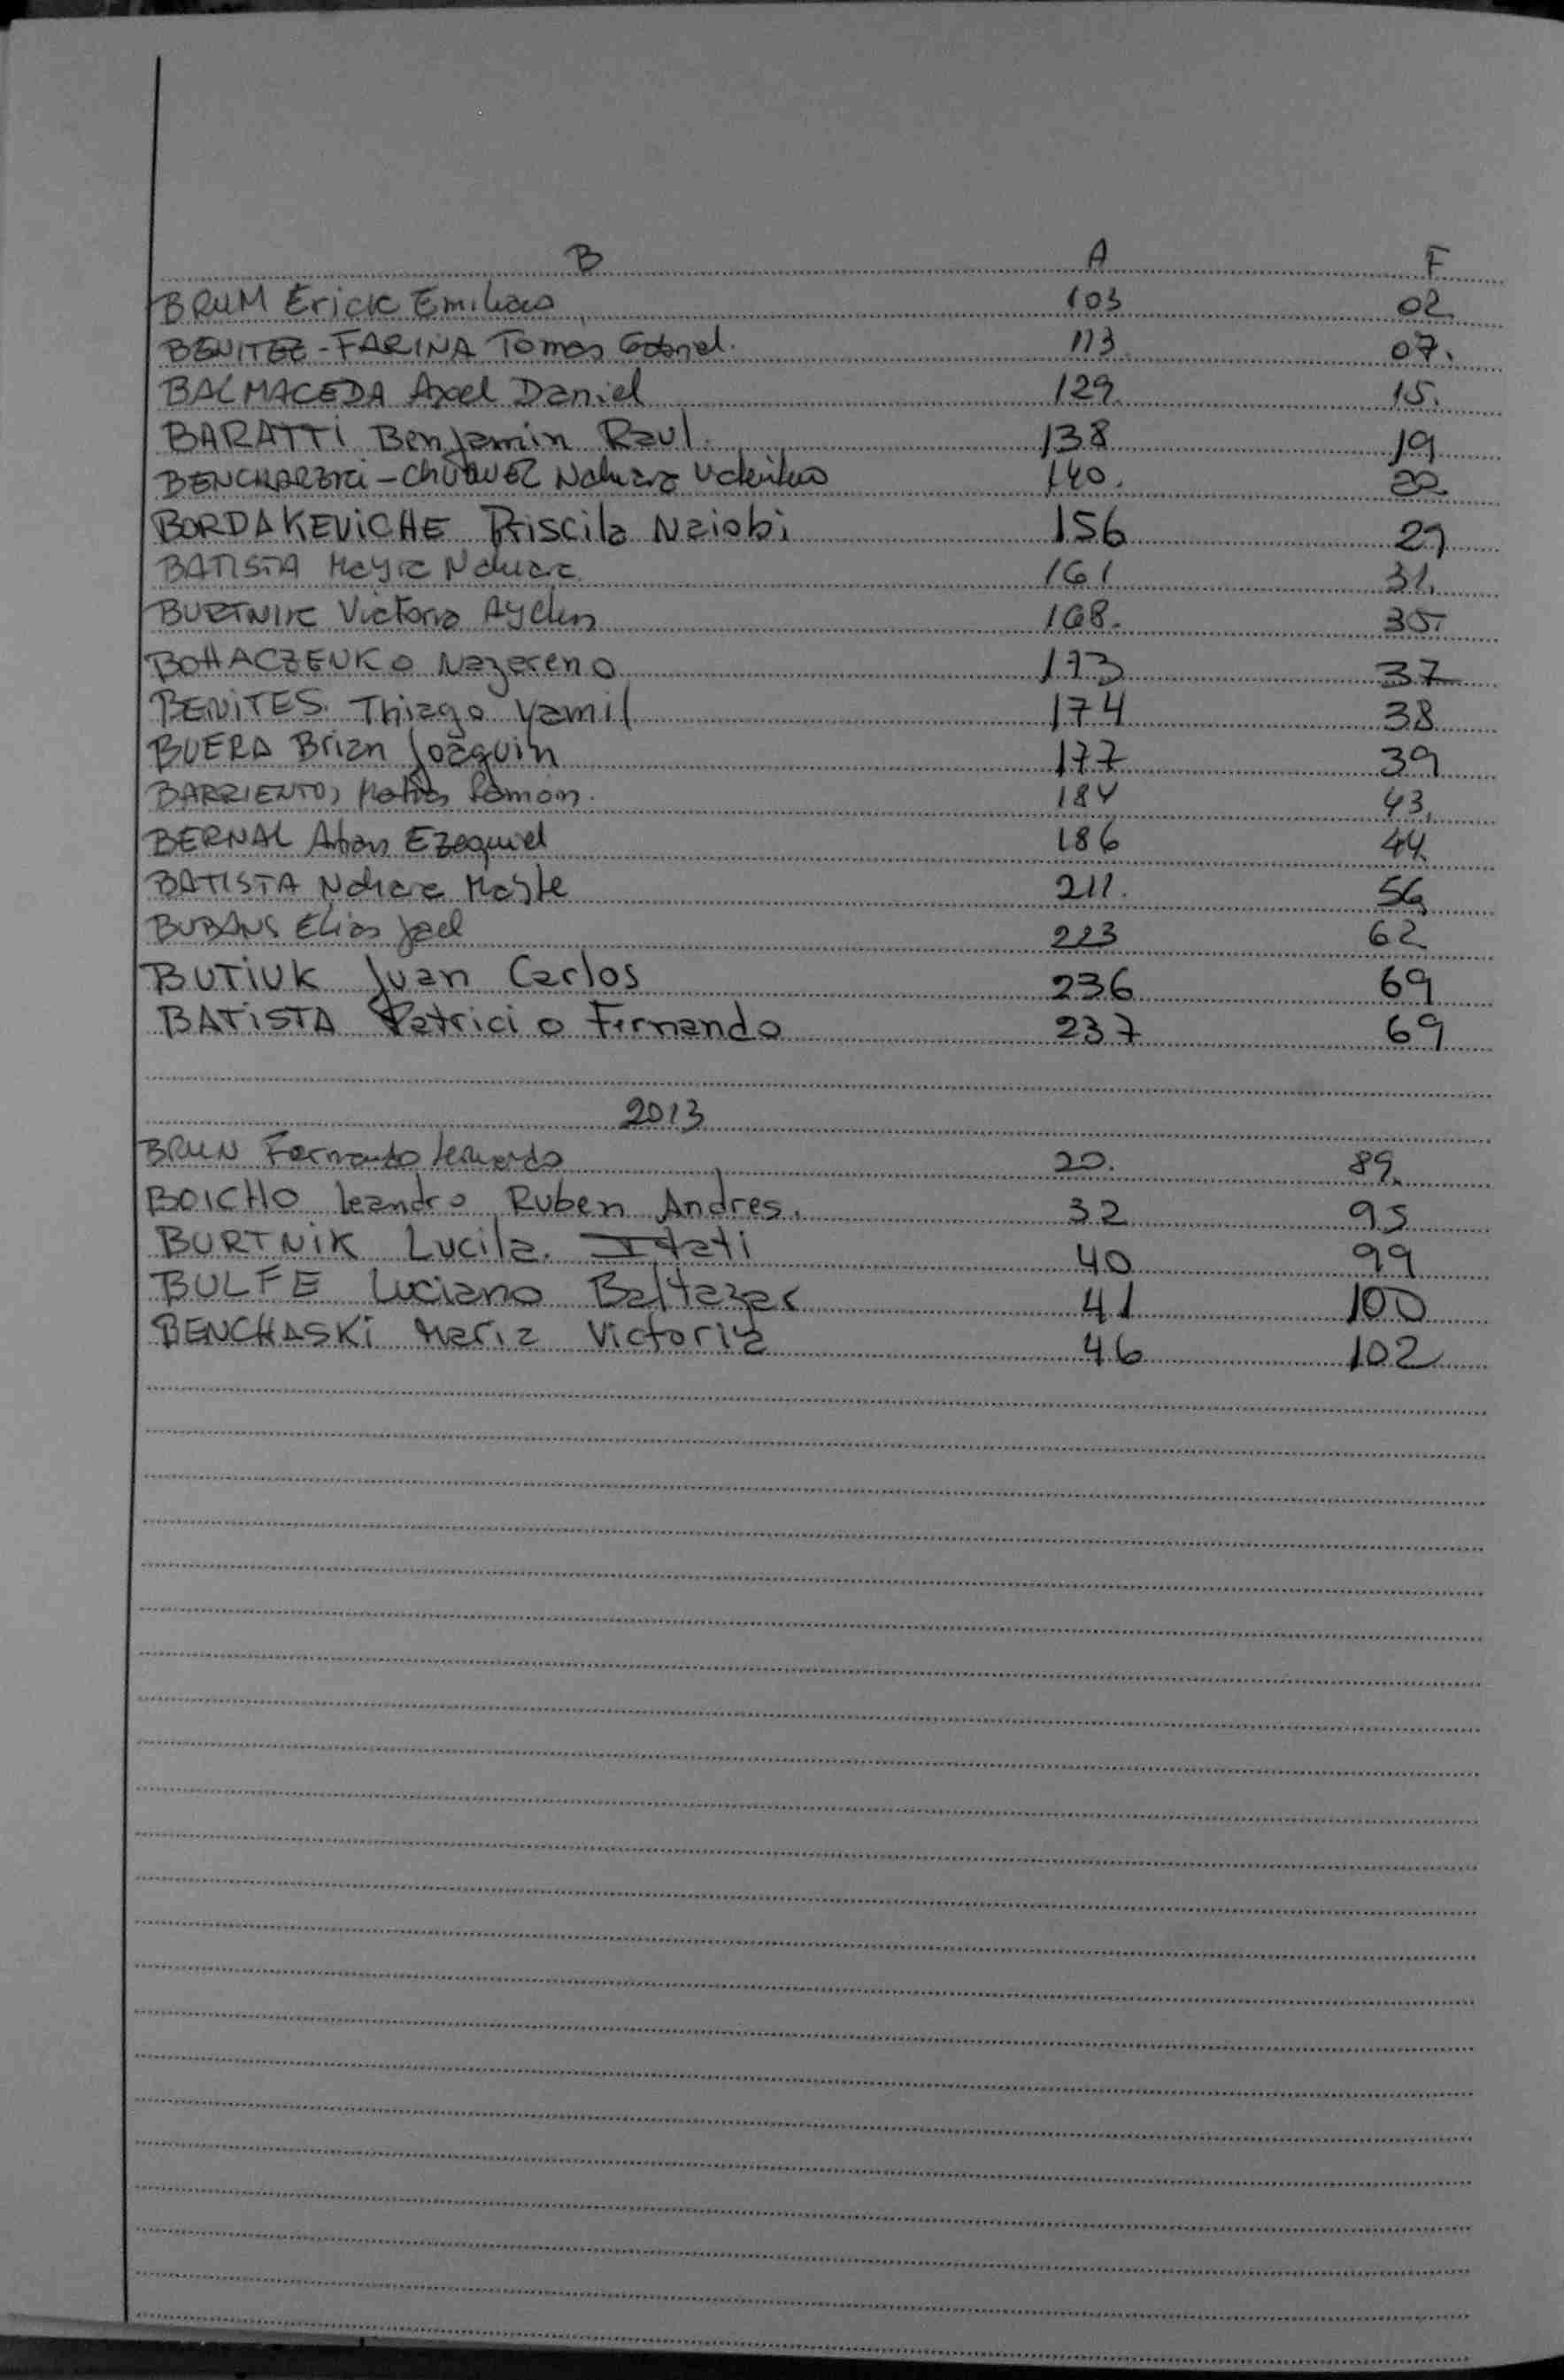 B A F
BRUM Erick Emiliano 103 02
BENITEZ-FARINA Tomas Gabriel. 113 07.
BALMACEDA Axel Daniel 129 15.
BARATTi Benjamin Raul. 138 19
Nahiara Valentina 140. 22
BORDAKEViCHE Priscila Naiobi 156 29
BATISTA Mayra Nahiara 161 31.
BURTNIK Victoria Ayelen 168. 35.
BOHACZENKO Nazareno 173 37
BENiTES. Thiago Yamil 174 38
BUERA Brian Joaquin 177 39
BARRIENTOS Matias Ramon. 184 43.
BERNAL Ezequiel 186 44.
BATISTA Nahiara 211. 56
Elias Jael 223 62
BUTiUK Juan Carlos 236 69
BATiSTA Patricio Fernando 237 69
2013
BRUN Fernando Leonardo 20. 89.
BOICHO Leandro Ruben Andres. 32 95
BURTNiK Lucila. Itati 40 99
BULFE Luciano Baltazar 41 100
BENCHASKi Maria Victoria 46 102